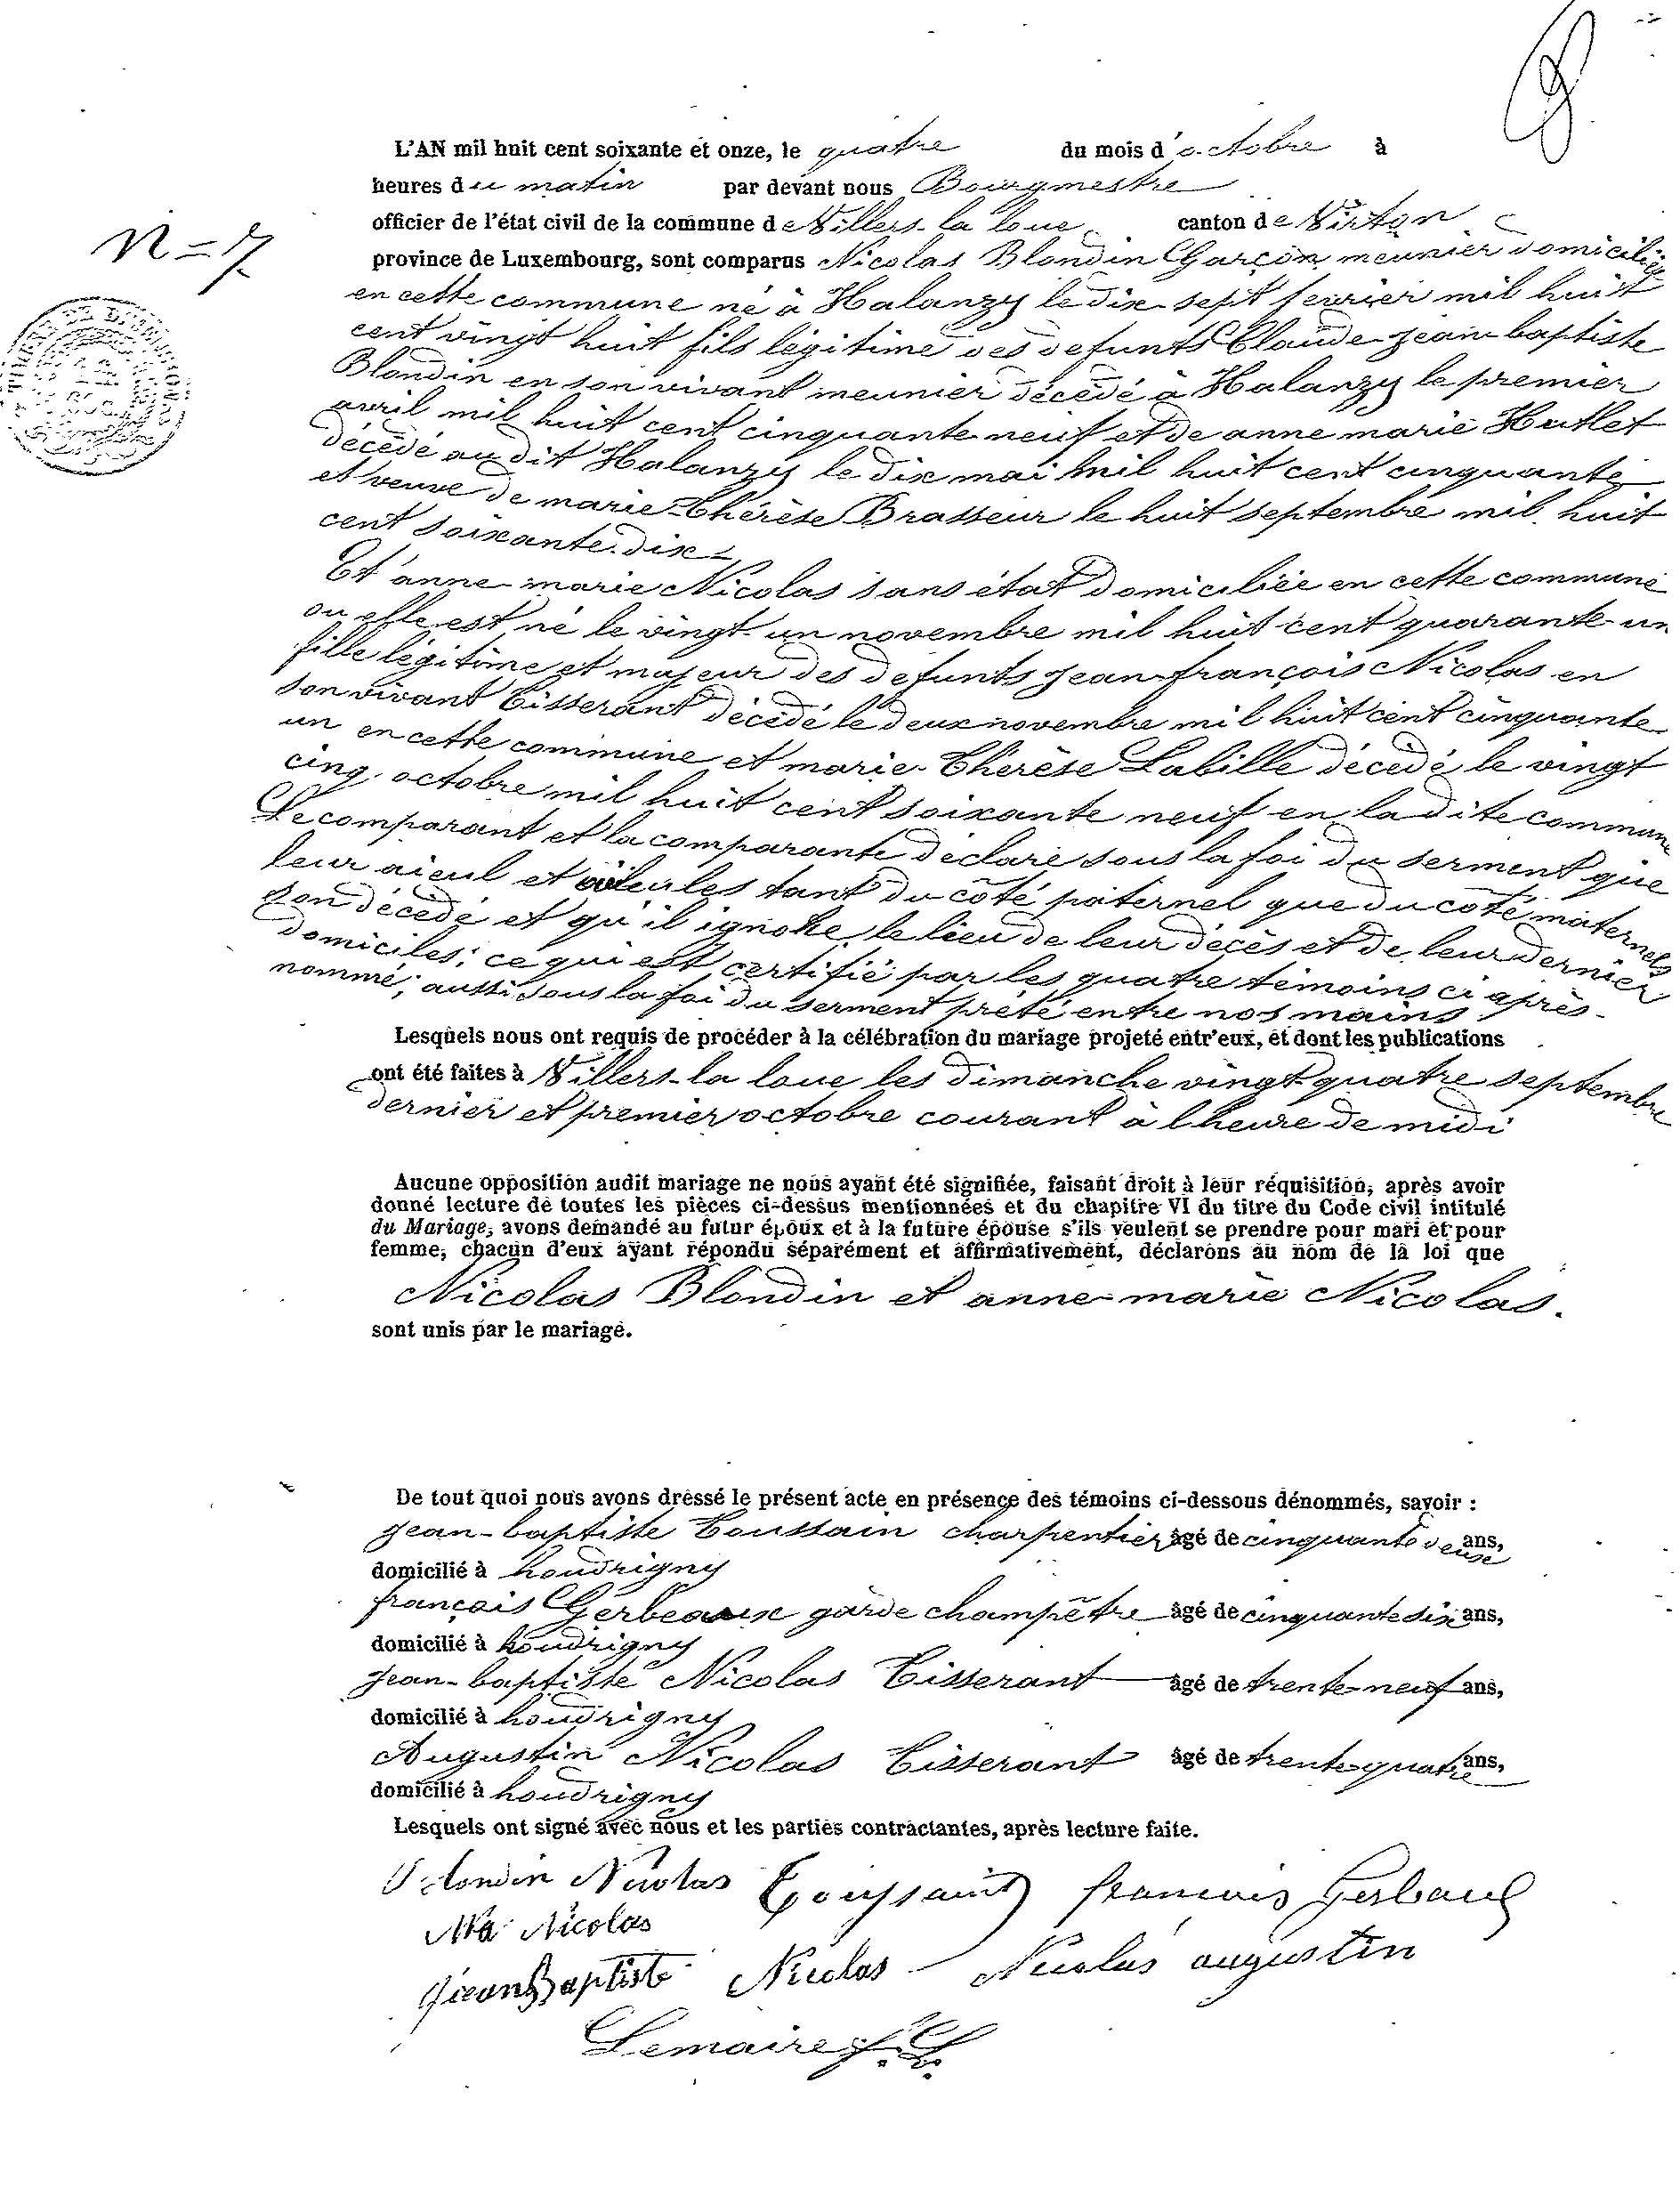 8
L'AN mil huit cent soixante et onze, le quatre du mois d'octobre à
heures du matin par devant nous Bourgmestre
officier de l'état civil de la commune de Villers-la loue canton de Virton
n=7
province de Luxembourg, sont comparus Nicolas Blondin Garçon meunier domicilié
en cette commune né à Halanzy le dix-sept fevrier mil huit
cent vingt huit fils légitime des defunts Claude-jean-baptiste
Blondin en son vivant meunier décédé à Halanzy le premier
avril mil huit cent cinquante-neuf et de anne marie Hutlet
décédé au dit Halanzy le dix mai mil huit cent cinquante
et veuve de marie-Thérèse Brasseur le huit septembre mil huit
cent soixante-dix-
Et anne-marie Nicolas sans état domiciliée en cette commune
ou elle est né le vingt-un novembre mil huit cent quarante-un
fille légitime et majeur des defunts jean-françois Nicolas en
son vivant Tisserant décédé le deux novembre mil huit cent cinquante
un en cette commune et marie-Thérèse Labille décédé le vingt
cinq octobre mil huit cent soixante neuf en la dite commune
Le comparant et la comparante déclare sous la foi du serment que
leur aieul et aieules tant du côté paternel que du côté maternels
son décédé et qu'il ignore le lieu de leur décès et de leur dernier
domiciles; ce qui est certifié par les quatre témoins ci après-
nommé; aussi sous la foi du serment prêté entre nos mains
Lesquels nous ont requis de procéder à la célébration du mariage projeté entr'eux, et dont les publications
ont été faites à Villers-la loue les dimanche vingt-quatre septembre
dernier et premier octobre courant à l'heure de midi
Aucune opposition audit mariage ne nous ayant été signifiée, faisant droit à leur réquisition, après avoir
donné lecture de toutes les pièces ci-dessus mentionnées et du chapitre VI du titre du Code civil intitulé
du Mariage, avons demandé au futur époux et à la future épouse s'ils veulent se prendre pour mari et pour
femme; chacun d'eux ayant répondu séparément et affirmativement, déclarons au nom de la loi que
Nicolas Blondin et anne-marie Nicolas.
sont unis par le mariage.
De tout quoi nous avons dressé le présent acte en présence des témoins ci-dessous dénommés, savoir :
jean-baptiste Toussain charpentier âgé de cinquante deux ans,
domicilié à houdrigny
françois Gerbeaux garde champêtre âgé de cinquante six ans,
domicilié à houdrigny
jean-baptiste Nicolas Tisserant âgé de trente-neuf ans,
domicilié à houdrigny
Augustin Nicolas Tisserant âgé de trente-quatre ans,
domicilié à houdrigny
Lesquels ont signé avec nous et les parties contractantes, après lecture faite.
Blondin Nicolas Toussaint francois Gerbaux
Ma Nicolas
Jean Baptiste Nicolas Nicolas augustin
Lemaire f. L.